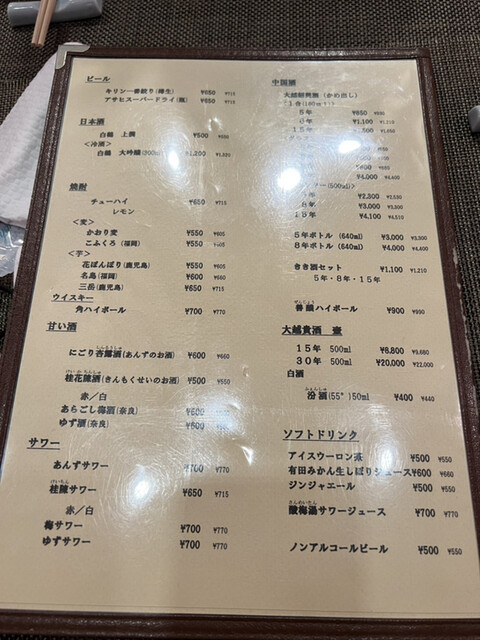 ビール
キリン一番搾り(樽生) ¥650 ¥715
アサヒスーパードライ(瓶) ¥650 ¥715
日本酒
白鶴 上撰 ¥500 ¥550
<冷酒>
白鶴 大吟醸(300ml) ¥1,200
焼酎
チューハイ ¥650 ¥715
レモン
<麦>
かおり麦 ¥550 ¥605
こふくろ(福岡) ¥550 ¥605
<芋>
花ぼんぼり(鹿児島) ¥550 ¥605
名島(福岡) ¥600 ¥660
三岳(鹿児島) ¥650 ¥715
ウイスキー
角ハイボール ¥700 ¥770
甘い酒
にごり杏露酒(あんずのお酒) ¥600 ¥660
桂花陳酒(きんもくせいのお酒) ¥500 ¥550
赤/白
あらごし梅酒(奈良) ¥600
ゆず酒(奈良) ¥600
サワー
あんずサワー ¥700 ¥770
けいちん
桂陳サワー ¥650 ¥715
赤/白
梅サワー ¥700 ¥770
ゆずサワー ¥700 ¥770
中国酒
(かめ出し)
5年 ¥550
¥1,100
¥4,000 ¥4,400
(500ml)>
¥2,300 ¥2,530
8年 ¥3,000
15年 ¥4,100 ¥4,510
5年ボトル (640ml) ¥3,000 ¥3,300
8年ボトル (640ml) ¥4,000 ¥4,400
きき酒セット ¥1,100 ¥1,210
5年・8年・15年
ハイボール ¥900 ¥990
大越貴酒 壺
15年 500ml ¥8,800 ¥9,680
30年 500ml ¥20,000 ¥22,000
白酒
汾酒(55°)50ml ¥400 ¥440
ソフトドリンク
アイスウーロン茶 ¥500 ¥550
有田みかん生しぼりジュース ¥600 ¥660
ジンジャエール ¥500 ¥550
さんめいたん
酸梅湯サワージュース ¥700 ¥770
ノンアルコールビール ¥500 ¥550